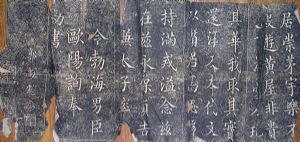 居崇茅宇樂不
遊黄屋非貴
其華我取其實
還淳反本代文
以質居高思
持滿戒溢念茲
在茲永保貞吉
兼太子率
令勃海男臣
歐陽詢奉
勑書